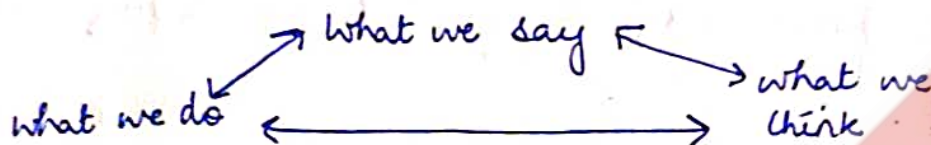 What we say
what we do
what we
think